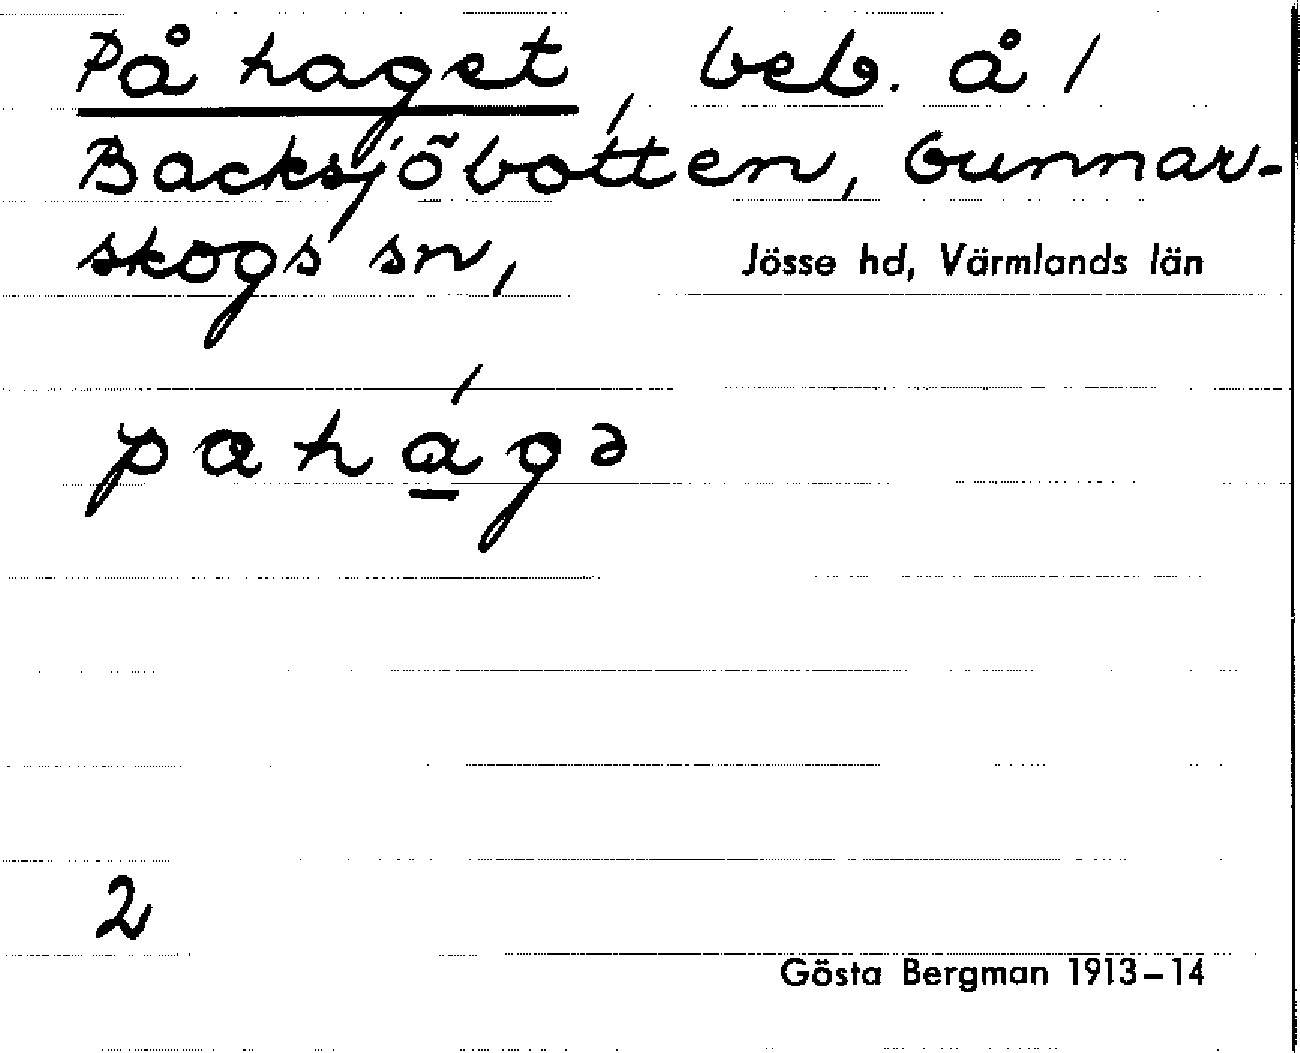 På haget, beb. å /
Backsjöbotten, Gunnar-
skogs sn, Jösse hd, Värmlands län
pahágə
2
Gösta Bergman 1913–14